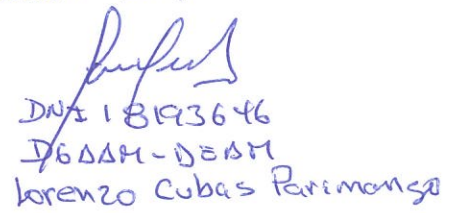 DNI 18193646
DGAAM-DEAM
Lorenzo Cubas Parimango